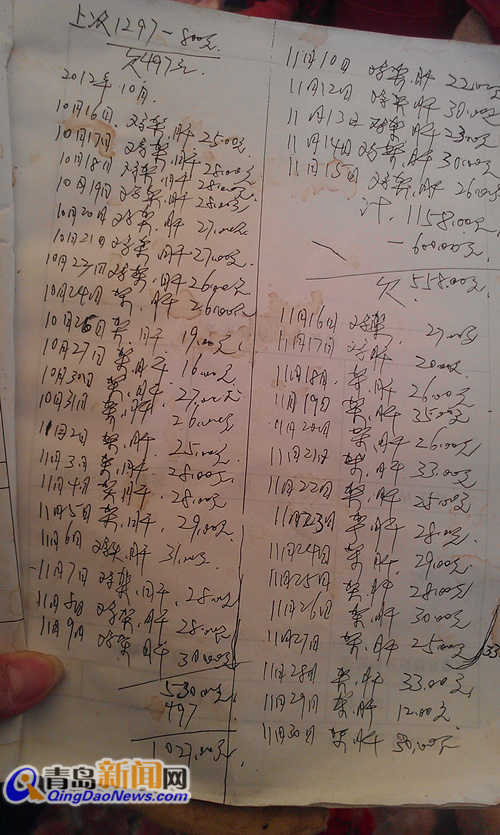 上次1297-800元
欠497元.
2012年10月.
10月16日. 鸡架.肝 25.00元.
10月17日 鸡架.肝 28.00元
10月18日 鸡架.肝 28.00元
10月19日 鸡架.肝 28.00元
10月20日 鸡架.肝 27.00元
10月21日 鸡架.肝 27.00元.
10月23日 鸡架.肝 26.00元
10月24日 架.肝 26.00元
10月26日 架.肝 19.00元
10月27日 架.肝. 16.00元.
10月30日 架.肝. 27.00元
10月31日 架.肝. 26.00元
11月2日 架.肝 25.00元
11月3日 架.肝 28.00元
11月4日 架.肝 28.00元.
11月5日 架.肝. 29.00元
11月6日 鸡架.肝 31.00元
11月7日 鸡架.肝. 28.00元
11月8日 鸡架.肝 28.00元
11月9日 鸡架.肝 30.00元
530.00元
497
1027.00元
11月10日 鸡架.肝 22.00元
11月12日 鸡架.肝 30.00元
11月13日 鸡架.肝 23.00元
11月14日 鸡架.肝 30.00元
11月15日 鸡架.肝 26.00元
计. 1158.00元
-600.00元
欠 558.00元.
11月16日 鸡架. 27.00元
11月17日 鸡肝 20.00元
11月18日. 架.肝 26.00元
11月19日 架.肝 35.00元
11月20日 架.肝 26.00元
11月21日 架.肝 33.00元
11月22日 架.肝 25.00元
11月23日 架.肝 28.00元
11月24日 架.肝. 29.00元
11月25日 架.肝 28.00元
11月26日 架.肝 30.00元
11月27日 架.肝 25.00元 33
11月28日 架.肝 33.00元
11月29日 架.肝 12.00元.
11月30日 架.肝 30.00元
青岛新闻网
QingDaoNews.com